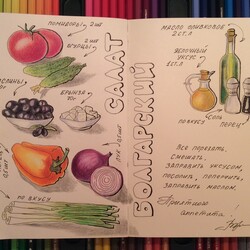 ПОМИДОРЫ
2 шт
ОГУРЦЫ
2 шт
МАСЛИНЫ
БРЫНЗА
70г
ЛУК - 1 шт
ПО ВКУСУ
БОЛГАРСКИЙ
САЛАТ
МАСЛО ОЛИВКОВОЕ
2 СТ.Л
ЯБЛОЧНЫЙ
УКСУС
СОЛЬ
ПЕРЕЦ
Все порезать,
смешать,
заправить уксусом,
посолить, поперчить,
заправить маслом.
Приятного
аппетита